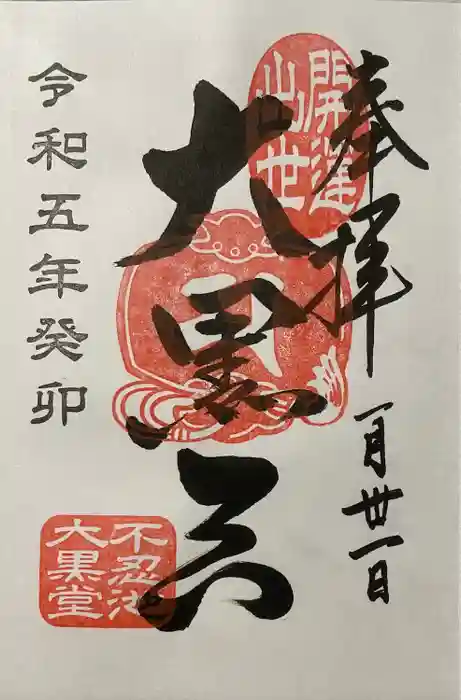 奉拝
一月丗一日
開運
出世
大黒天
令和五年癸卯
不忍池
大黒堂